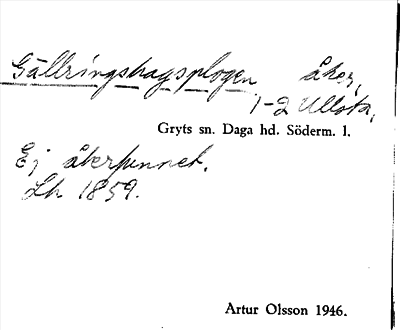 Gällringshagsplogen, åker,
1-2 Ullsta,
Gryts sn. Daga hd. Söderm. l.
Ej återfunnet.
Lh 1859.
Artur Olsson 1946.